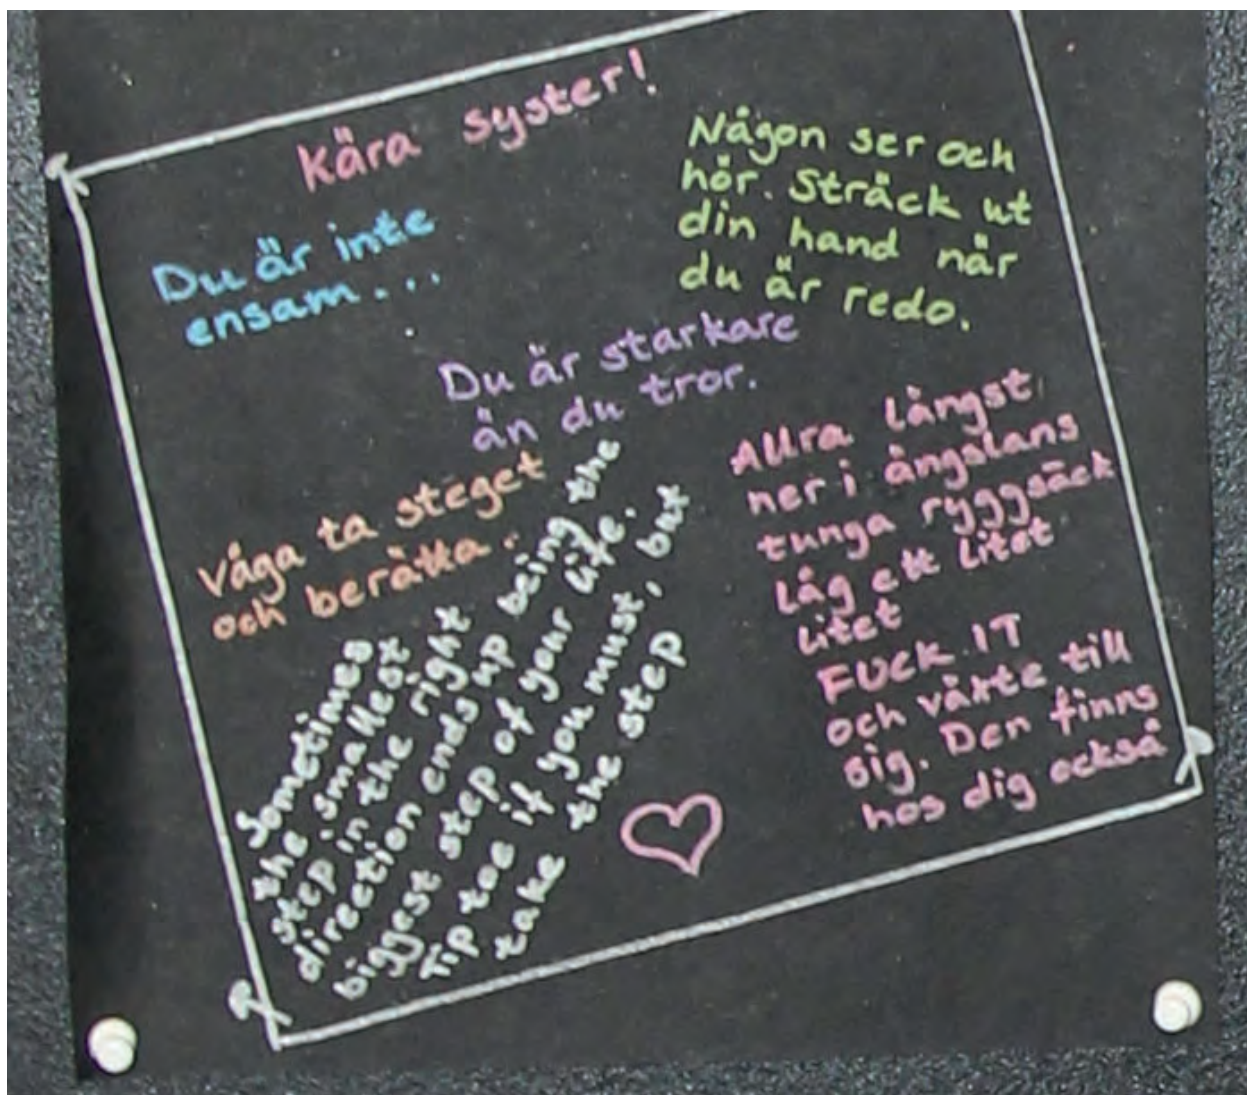 Kära syster!
Du är inte
ensam...
Någon ser och
hör. Sträck ut
din hand när
du är redo.
Du är starkare
än du tror.
Våga ta steget
och berätta..
Sometimes
the smallest
step in the right
direction ends up being the
biggest step of your life.
Tip toe if you must, but
take the step
Allra längst
ner i ängslans
tunga ryggsäck
låg ett litet
litet
FUCK IT
och växte till
sig. Den finns
hos dig också